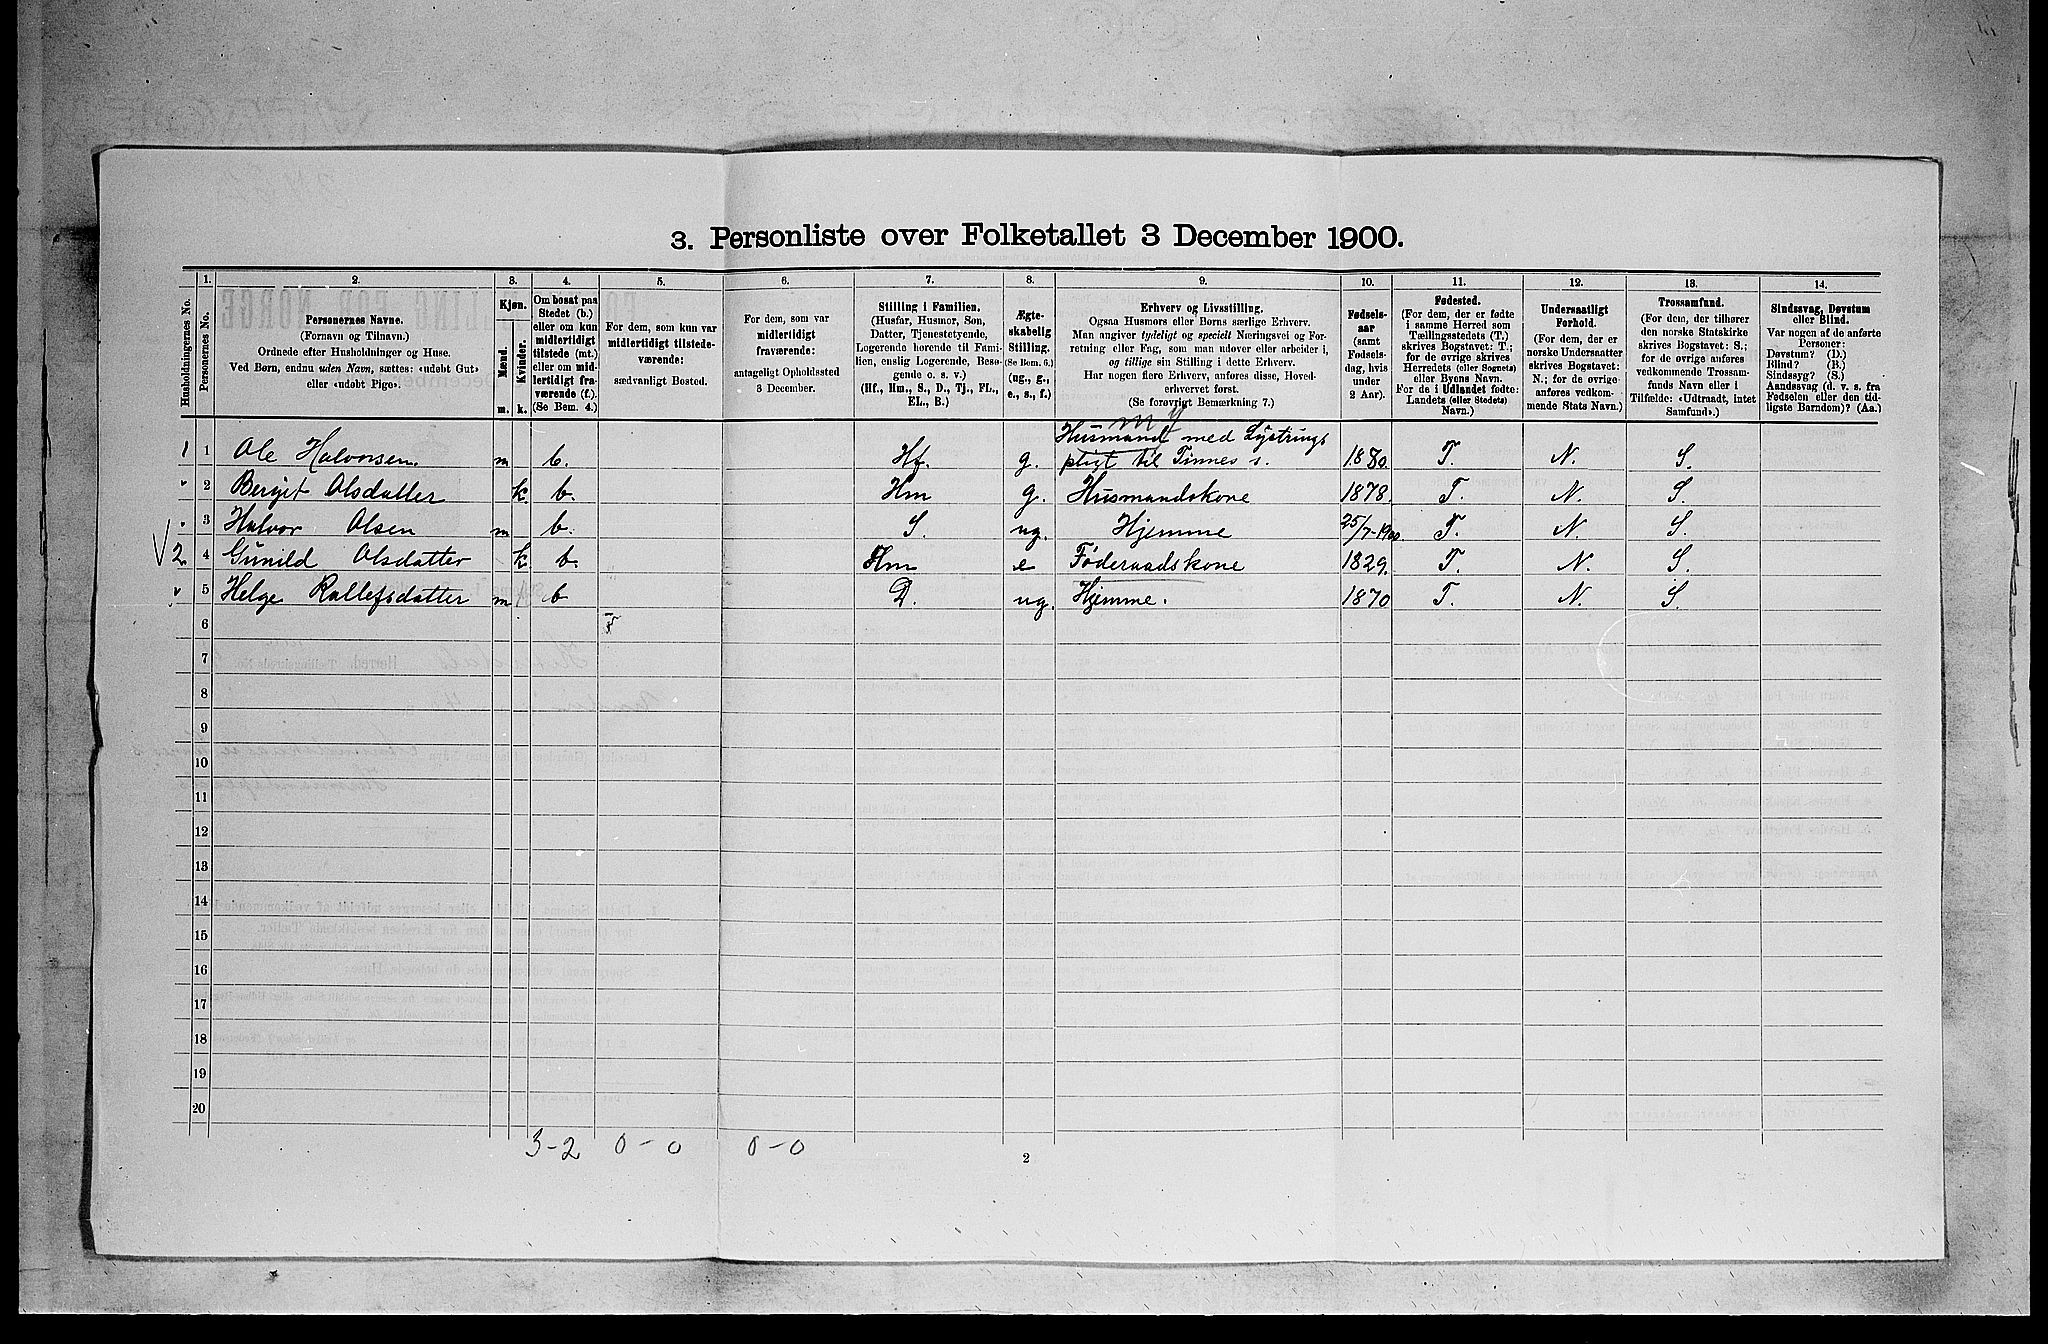 3. Personliste over Folketallet 3 December 1900.
1. 2. 3. 4. 5. 6. 7. 8. 9. 10. 11. 12. 13. 14.
Husholdningernes No.
Personernes No.
Personernes Navne.
(Fornavn og Tilnavn.)
Ordnede efter Husholdninger og Huse.
Ved Børn, endnu uden Navn, sættes: «udøbt Gut»
eller «udøbt Pige».
Kjøn.
Mænd.
Kvinder.
m. k.
Om bosat paa
Stedet (b.)
eller om kun
midlertidigt
tilstede (mt.)
eller om mid-
lertidigt fra-
værende (f.)
(Se Bem. 4.)
For dem, som kun var
midlertidigt tilstede-
værende:
sædvanligt Bosted.
For dem, som var
midlertidigt
fraværende:
antageligt Opholdssted
3 December.
Stilling i Familien.
(Husfar, Husmor, Søn,
Datter, Tjenestetyende,
Logerende hørende til Fami-
lien, enslig Logerende, Besø-
gende o. s. v.)
(Hf., Hm., S., D., Tj., FL.,
EL., B.)
Ægte-
skabelig
Stilling.
(Se Bem. 6.)
(ug., g.,
e., s., f.)
Erhverv og Livsstilling.
Ogsaa Husmors eller Børns særlige Erhverv.
Man angiver tydeligt og specielt Næringsvei og For-
retning eller Fag, som man udøver eller arbeider i,
og tillige sin Stilling i dette Erhverv.
Har nogen flere Erhverv, anføres disse, Hoved-
erhvervet først.
(Se forøvrigt Bemærkning 7.)
Fødsels-
aar
(samt
Fødsels-
dag, hvis
under
2 Aar).
Fødested.
(For dem, der er fødte
i samme Herred som
Tællingsstedets (T.)
skrives Bogstavet: T.;
for de øvrige skrives
Herredets (eller Sognets)
eller Byens Navn.
For de i Udlandet fødte:
Landets (eller Stedets)
Navn.)
Undersaatligt
Forhold.
(For dem, der er
norske Undersaatter
skrives Bogstavet:
N.; for de øvrige
anføres vedkom-
mende Stats Navn.)
Trossamfund.
(For dem, der tilhører
den norske Statskirke
skrives Bogstavet: S.;
for de øvrige anføres
vedkommende Trossam-
funds Navn eller i
Tilfælde: «Udtraadt, intet
Samfund».)
Sindssvag, Døvstum
eller Blind.
Var nogen af de anførte
Personer:
Døvstum? (D.)
Blind? (B.)
Sindssyg? (S.)
Aandssvag (d. v. s. fra
Fødselen eller den tid-
ligste Barndom)? (Aa.)
1 1 Ole Halvorsen. m b. Hf. g. Husmand med Lystrings
pligt til Tinnes s. 1880. T. N. S.
2 Bergit Olsdatter k. b. Hm g. Husmandskone 1878. T. N. S.
3 Halvor Olsen m b. S. ug. Hjemme 25/7-1900. T. N. S.
2 4 Gunild Olsdatter k. b. Hm e Føderaadskone 1829. T. N. S.
5 Helge Rollefsdatter m b D. ug. Hjemme. 1870 T. N. S.
6
7
8
9
10
11
12
13
14
15
16
17
18
19
20
3-2 0-0 0-0
2